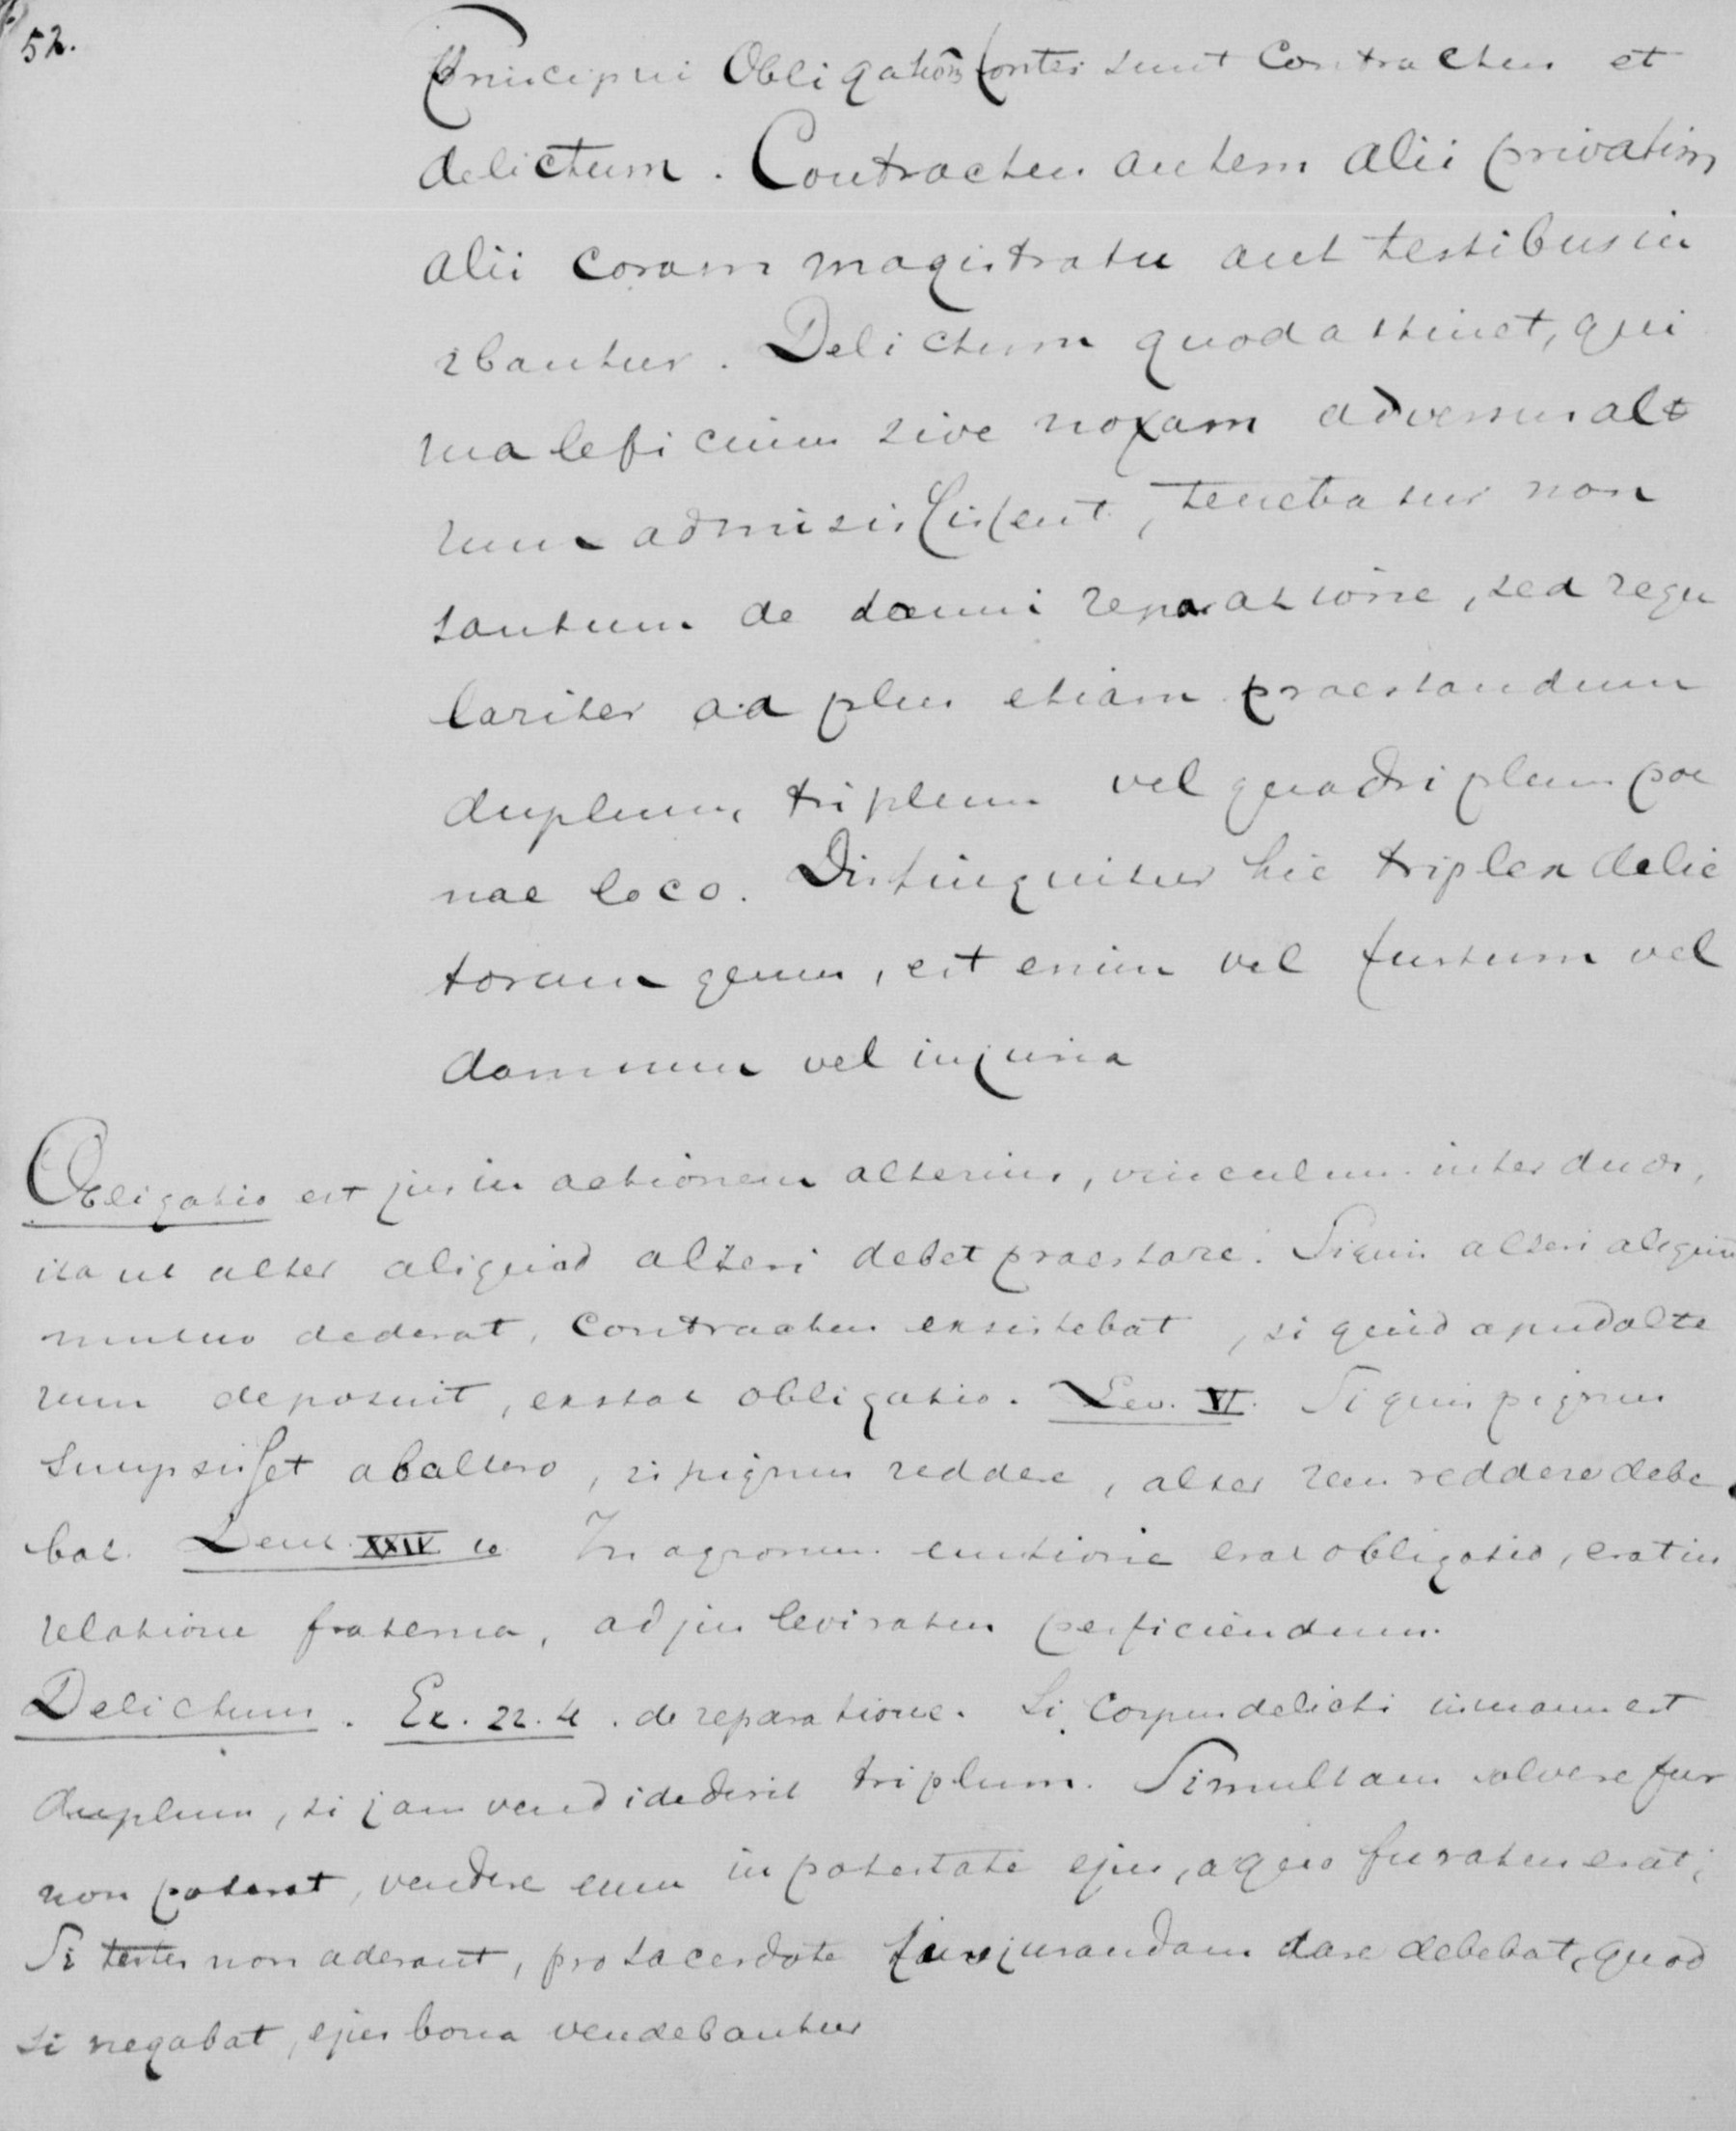 52.
Principui Obligatiōn fontes sunt Contractus et
delictum. Contractus autem alii privatim
alii coram magistratu aut testibus in
ibantur. Delictum quod attinet, qui
maleficium sive noxam adversus alt
rum admisissent, tenebatur non
tantum de damni reparatione, sed regu
lariter ad plus etiam praestandum
duplum, triplum vel quadriplum poe
nae loco. Distinguitur hic triplex delic
torum genus, est enim vel furtum vel
damnum vel injuria
Obligatio est jus in actionem alterius, vinculum inter duos,
ita ut alter aliquid alteri debet praestare. Si quis alteri
mutuo dederat, Contractus exsistebat, si quid apud alte
rum deposuit, exstat obligatio. Lev. VI. Si quis pignus
sumpsisset ab altero, si pignus reddere, alter rem reddere debe
bat. Deut. XXIV 10 In agrorum emtione erat obligatio, erat in
relatione fraterna, ad jus leviratus perficiendum.
Delictum. Ex. 22. 4. de reparatione. Si Corpus delicti in manu est
duplum, si jam vendidederit triplum. Si multam solvere fur
non poterat, vendere eum in potestate ejus, a quo furatus erat;
Si testes non aderant, pro sacerdote jusjurandam dare debebat, quod
si negabat, ejus bona vendebantur